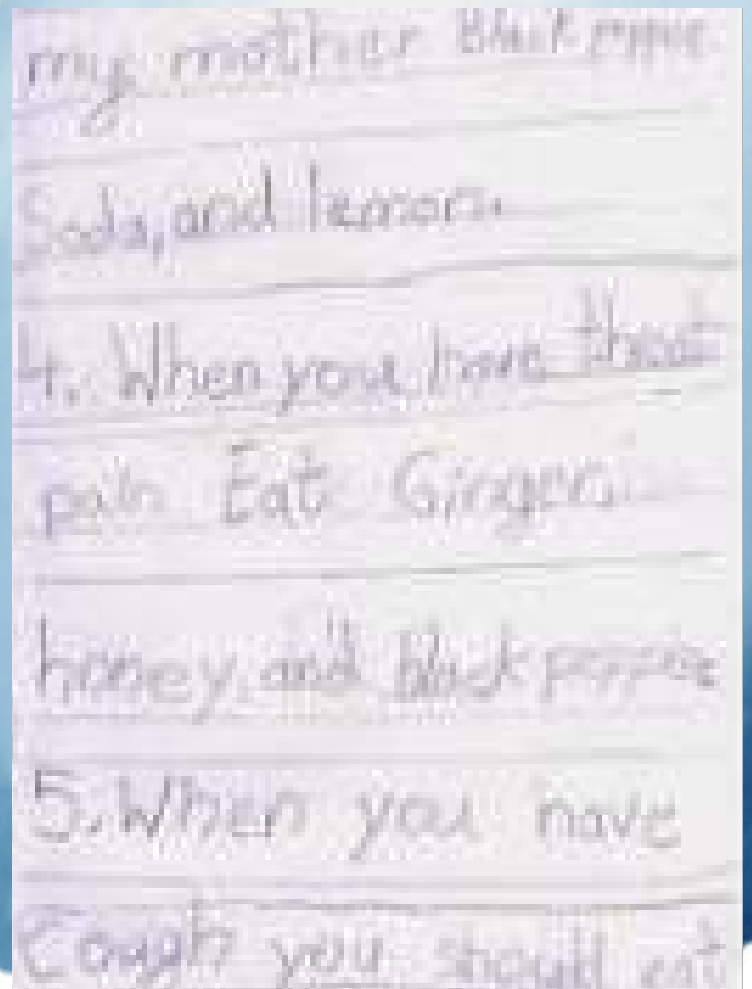 my mother Black
Soda, and lemon.
4. When you have throat
pain Eat Ginger,
honey, and black
5. When you have
Cough you should eat